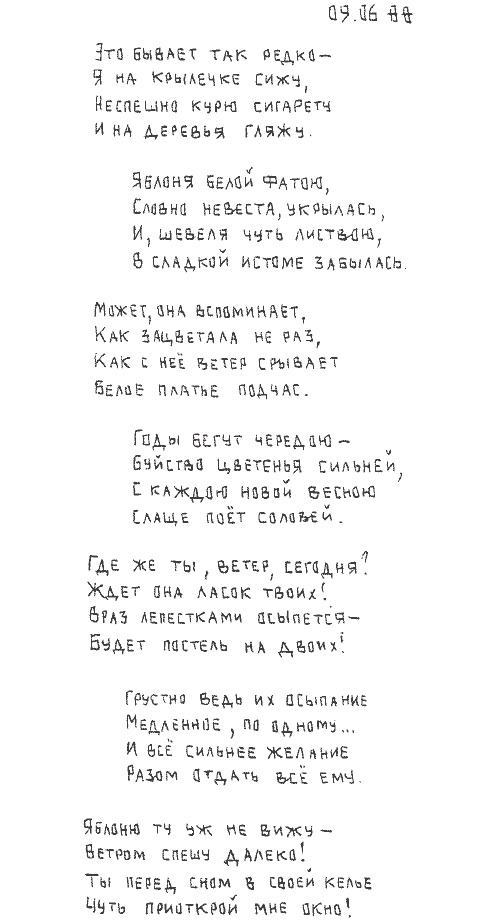 09.06 00
Это бывает так редко—
Я на крылечке сижу,
Неспешно курю сигарету
И на деревья гляжу.
Яблоня белой фатою,
Словно невеста, укрылась,
И, шевеля чуть листвою,
В сладкой истоме забылась.
Может, она вспоминает,
Как зацветала не раз,
Как с неё ветер срывает
Белое платье подчас.
Годы бегут чередою—
Буйство цветенья сильней,
С каждою новой весною
Слаще поёт соловей.
Где же ты, ветер, сегодня?
Ждет она ласок твоих!
Враз лепестками осыпется—
Будет постель на двоих!
Грустно ведь их осыпание
Медленное, по одному...
И всё сильнее желание
Разом отдать всё ему.
Яблоню ту уж не вижу—
Ветром спешу далеко!
Ты перед сном в своей келье
Чуть приоткрой мне окно!